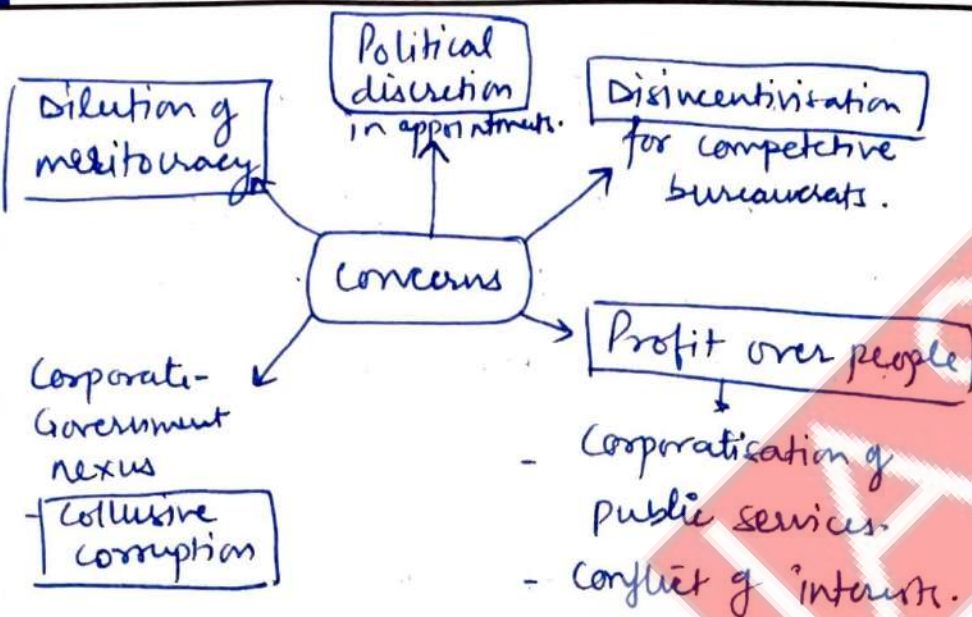 Political
discretion
in appointments.
Dilution of
meritocracy
Disincentivisation
for competetive
bureaucrats.
Concerns
Corporate-
Government
nexus
- Collusive
corruption
Profit over people
- Corporatisation of
public services.
- Conflict of interests.